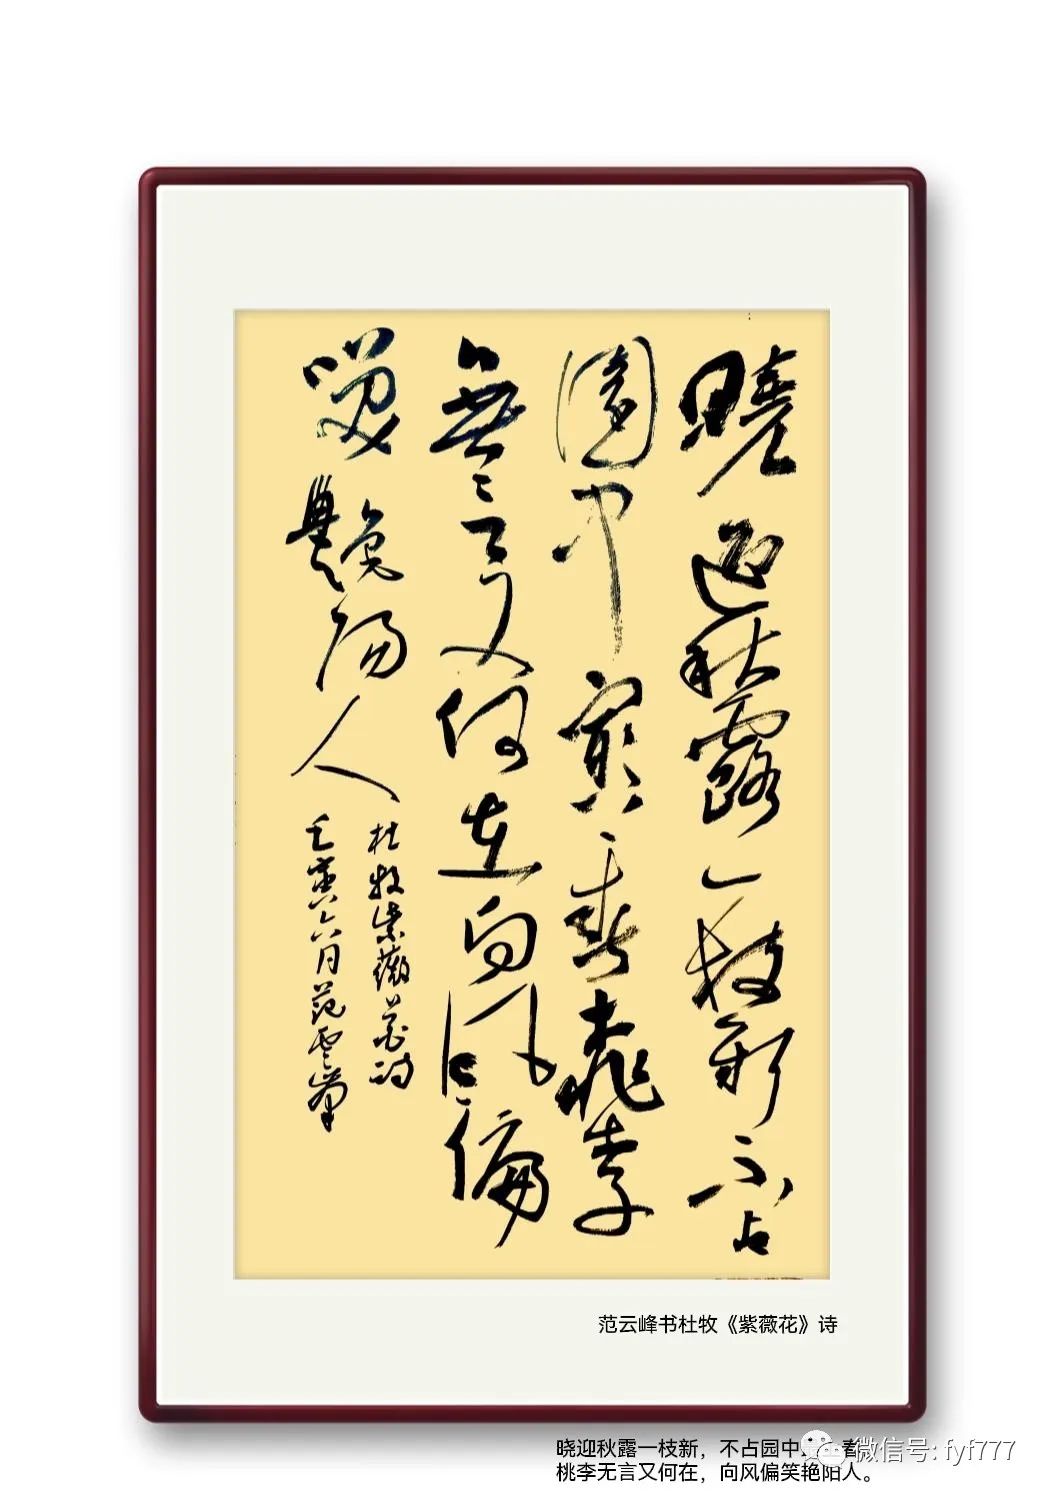 曉迎秋露一枝新不占
園中最上春桃李
無言又何在向風偏
笑艷陽人
杜牧紫薇花詩
壬寅六月范雲峯
范云峰书杜牧《紫薇花》诗
晓迎秋露一枝新，不占园中
桃李无言又何在，向风偏笑艳阳人。
微信号: fyf777